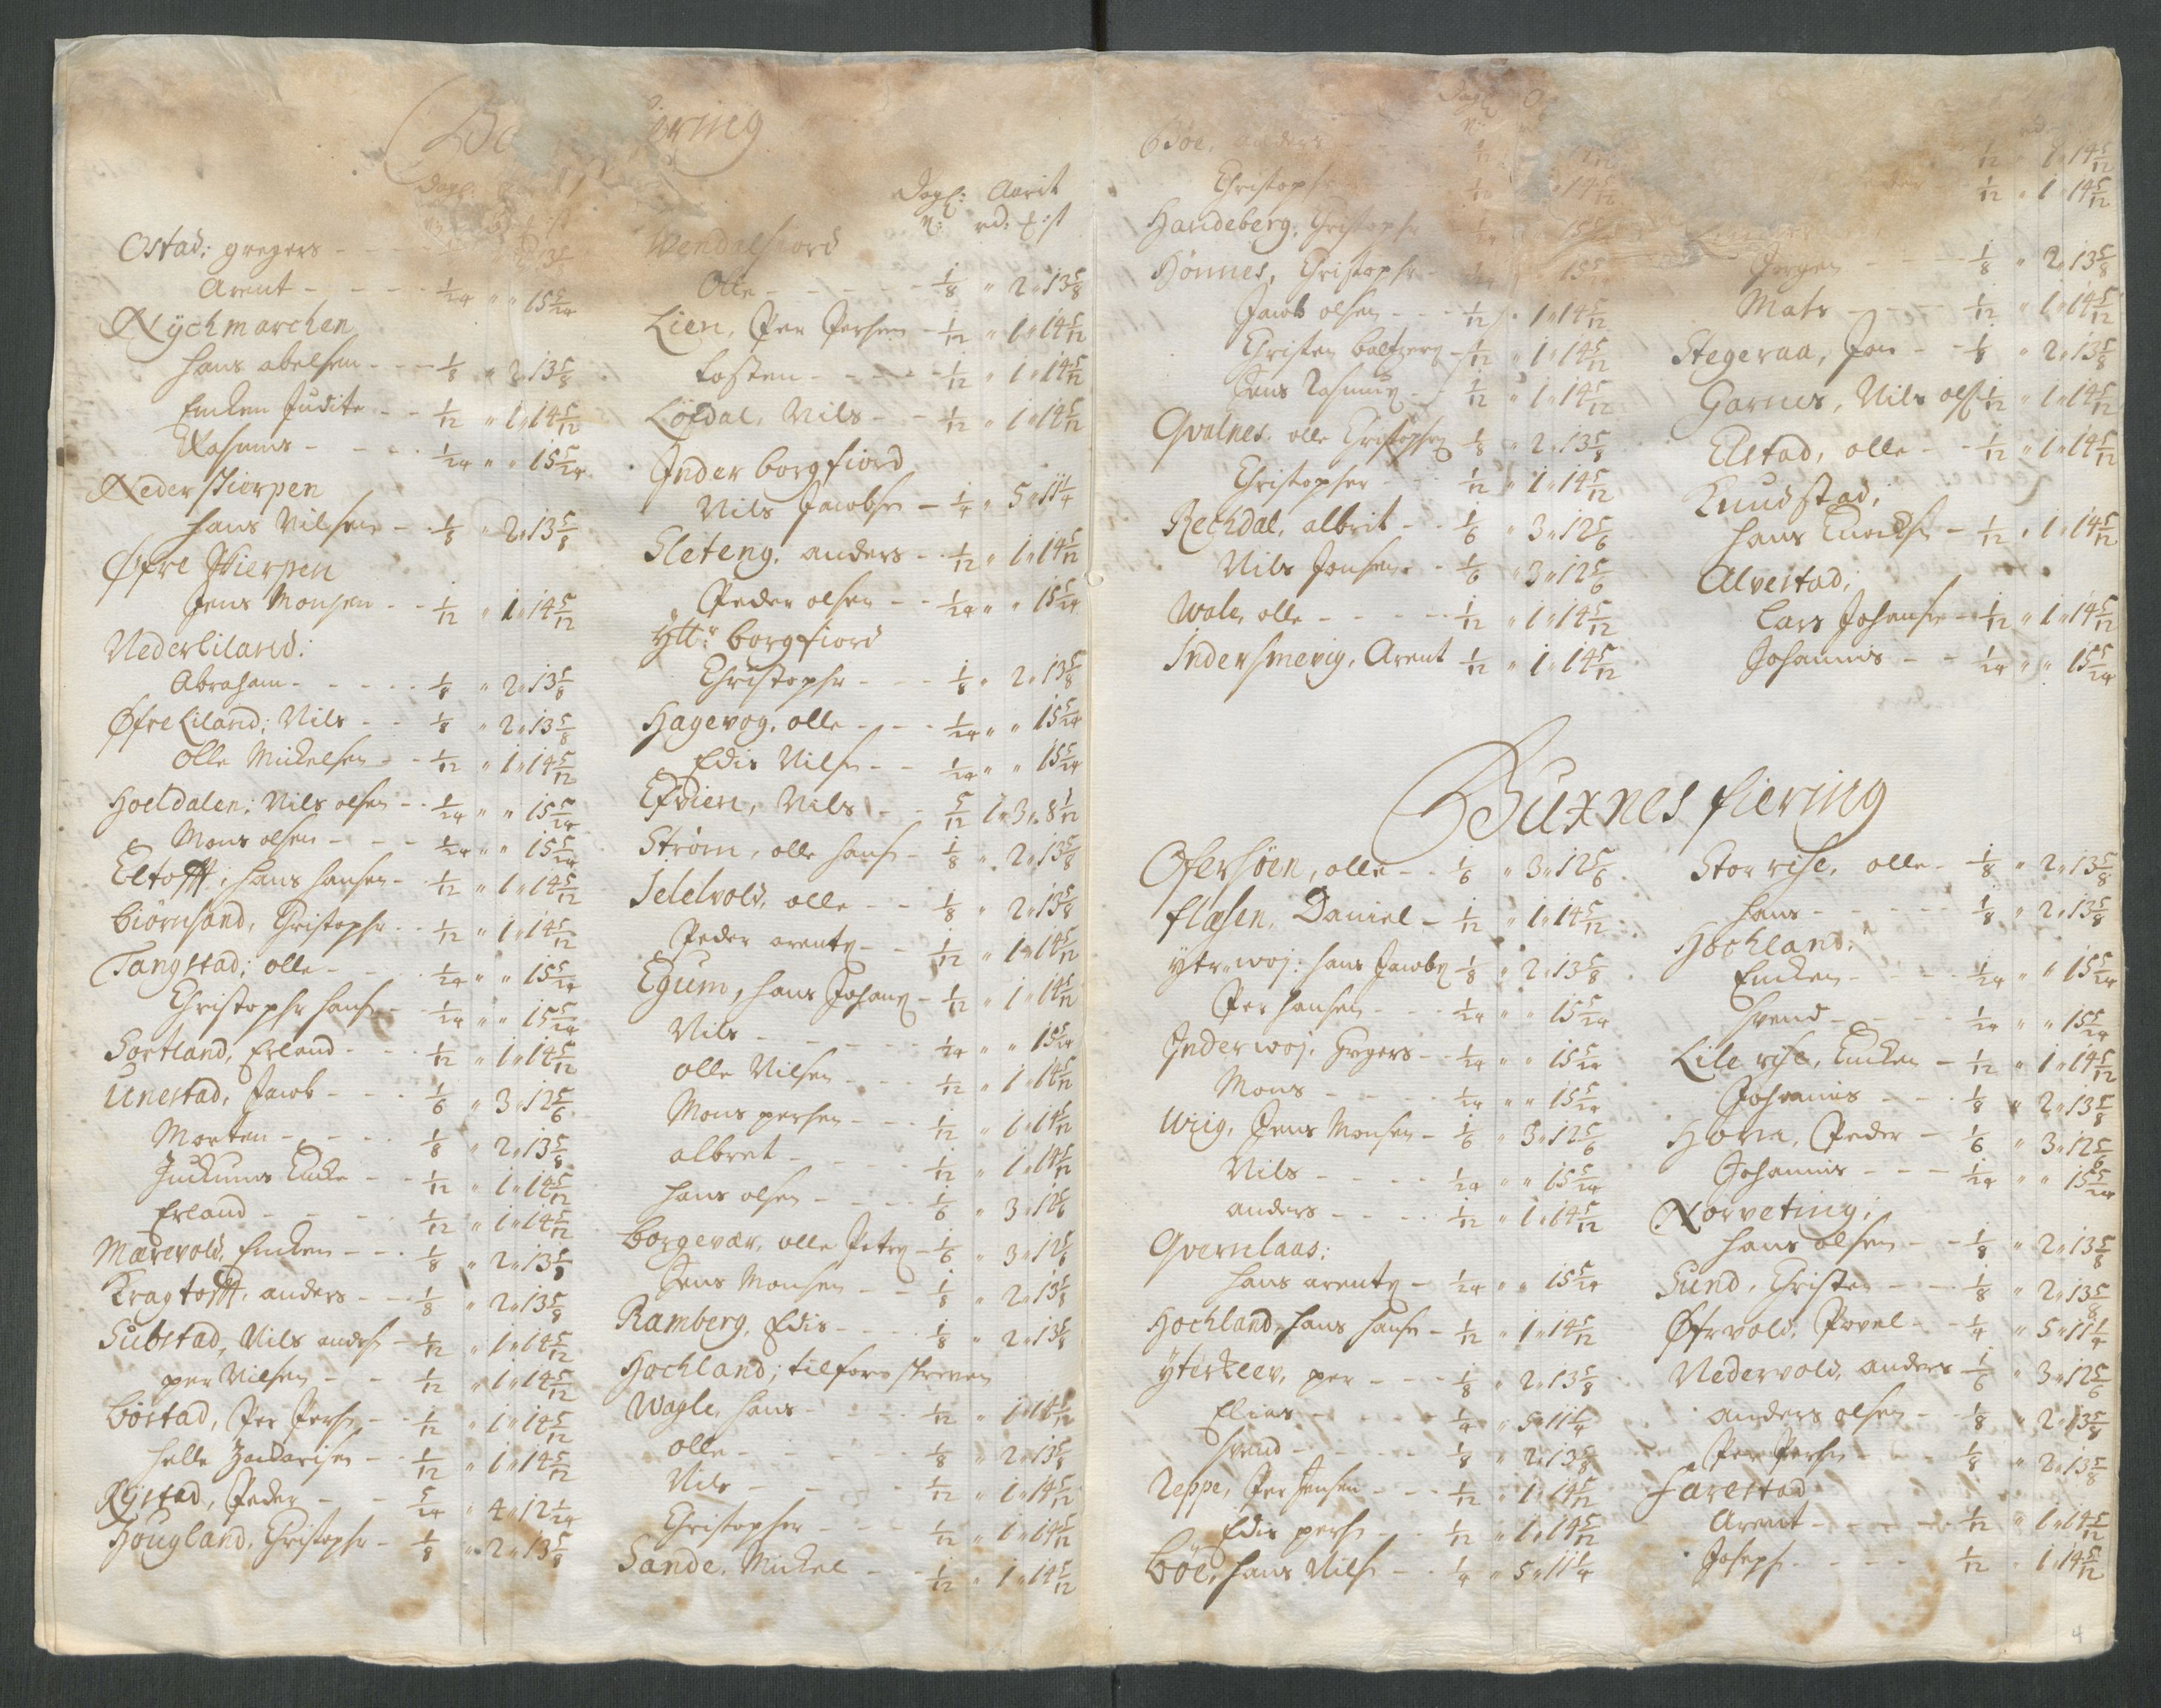 Dagsl: Aarit
N: rd: ß: st
Ostad: gregers - - -
Arent - - - - 1/24 " " 15 5/24
Nychmarchen
Hans abelsen - - - 1/8 " 2 " 13 5/8
Encken Judite - - 1/12 " 1 " 14 5/12
Rasmus - - - 1/24 " " 15 5/24
Neder Skierpen
Hans Nilsen - - 1/8 " 2 " 13 5/8
Øfre Skierpen
Jens Monsen - - 1/12 " 1 " 14 5/12
Nederliland:
Abraham - - - - 1/8 " 2 " 13 5/8
Øfre Liland: Nils - - 1/8 " 2 " 13 5/8
Olle Mickelsen - - 1/12 " 1 " 14 5/12
Hoeldalen: Nils olsen - - 1/24 " " 15 5/24
Mons olsen - - - 1/24 " " 15 5/24
Eltofft; Hans Hansen - - 1/12 " 1 " 14 5/12
Biörnsand, Christopher - - 1/12 " 1 " 14 5/12
Tangstad; olle - - - 1/24 " " 15 5/24
Christopher Hansen - 1/24 " " 15 5/24
Sortland, Erland - - 1/12 " 1 " 14 5/12
Unestad, Jacob - - - 1/6 " 3 " 12 5/6
Morten - - - - 1/8 " 2 " 13 5/8
Encke - - 1/12 " 1 " 14 5/12
Erland - - - - 1/12 " 1 " 14 5/12
Mærevold, Encken - - - 1/8 " 2 " 13 5/8
Kragtofft, anders - - 1/8 " 2 " 13 5/8
Substad, Nils anders: - 1/12 " 1 " 14 5/12
per Nilsen - - 1/12 " 1 " 14 5/12
Böstad, Per Persen - - 1/12 " 1 " 14 5/12
Helle Zacharisen - - 1/12 " 1 " 14 5/12
Rystad, Peder - - - 5/24 " 4 " 12 1/24
Hougland, Christopher - 1/8 " 2 " 13 5/8
Dagsl: Aarit
N: rd: ß: st
Wendalfiord
Olle - - - - - 1/8 " 2 " 13 5/8
Lien, Per Persen - 1/12 " 1 " 14 5/12
tosten - - - - 1/12 " 1 " 14 5/12
Löfdal, Nils - - 1/12 " 1 " 14 5/12
Inder borgfiord
Nils Jacobsen - 1/4 " 5 " 11 1/4
Sleteng, anders - - 1/12 " 1 " 14 5/12
Peder olsen - - 1/24 " " 15 5/24
Ytt: borgfiord
Christopher - - - 1/8 " 2 " 13 5/8
Hagevog, olle - - - 1/24 " " 15 5/24
Edis Nilsen - - 1/24 " " 15 5/24
Efvien, Nils - - 5/12 1 " 3 " 8 1/12
Ström, olle Hansen - 1/8 " 2 " 13 5/8
Jelelvold, olle - - 1/8 " 2 " 13 5/8
Peder arents: - - 1/12 " 1 " 14 5/12
Egum, Hans Johans: - 1/12 " 1 " 14 5/12
Nils - - - - 1/24 " " 15 5/24
olle Nilsen - - - 1/12 " 1 " 14 5/12
Mons persen - - - 1/12 " 1 " 14 5/12
albret - - - - 1/12 " 1 " 14 5/12
Hans olsen - - - 1/6 " 3 " 12 5/6
Borgevær, olle Peters: - 1/6 " 3 " 12 5/6
Jens Monsen - - 1/8 " 2 " 13 5/8
Ramberg, Edis - - - 1/8 " 2 " 13 5/8
Hochland; tilforn skreven
Wagle, Hans - - - 1/12 " 1 " 14 5/12
olle - - - - 1/8 " 2 " 13 5/8
Nils - - - - 1/12 " 1 " 14 5/12
Christopher - - - 1/12 " 1 " 14 5/12
Sande, Mickel - - 1/12 " 1 " 14 5/12
Böe, anders
Christopher 14 5/12
Handeberg, Christopher
Hönnes, Christopher
Jacob olsen - - - 1/12 " 1 " 14 5/12
Christen baltzers: - 1/12 " 1 " 14 5/12
Jens Rasmus: - 1/12 " 1 " 14 5/12
Qvalnes, olle Christophers: 1/8 " 2 " 13 5/8
Christopher - - 1/12 " 1 " 14 5/12
Rechdal, albrit - - 1/6 " 3 " 12 5/6
Nils Jonsen - - 1/6 " 3 " 12 5/6
Wale, olle - - - - 1/12 " 1 " 14 5/12
Indersmerig, Arent 1/12 " 1 " 14 5/12
1/12 " 1 " 14 5/12
1/12 " 1 " 14 5/12
Jørgen - - - 1/8 " 2 " 13 5/8
Mats - - - - 1/12 " 1 " 14 5/12
Stegeraa, Jon - - 1/8 " 2 " 13 5/8
Garnes, Nils ols: 1/12 " 1 " 14 5/12
Elstad, olle - - 1/12 " 1 " 14 5/12
Knudstad;
Hans Knudsen - 1/12 " 1 " 14 5/12
Alvestad;
Lars Johansen - 1/12 " 1 " 14 5/12
Johannis - - 1/24 " " 15 5/24
Buxnes fiering
Ofersöen, olle - - 1/6 " 3 " 12 5/6
flæsen, Daniel - 1/12 " 1 " 14 5/12
ytr woj: Hans Jacobs: 1/8 " 2 " 13 5/8
Per Hansen - - - 1/24 " " 15 5/24
Inder woj, Gregers - 1/24 " " 15 5/24
Mons - - - - 1/24 " " 15 5/24
Urig, Jens Monsen - 1/6 " 3 " 12 5/6
Nils - - - - 1/24 " " 15 5/24
anders - - - - 1/12 " 1 " 14 5/12
Qvernlaas:
Hans arents: - 1/24 " " 15 5/24
Hochland, Hans Hansen - 1/12 " 1 " 14 5/12
yterkleev, per - - - 1/8 " 2 " 13 5/8
Elias - - - - 1/4 " 5 " 11 1/4
Svend - - - - 1/8 " 2 " 13 5/8
Reppe, Per Jensen - - 1/12 " 1 " 14 5/12
Edis pers: - - 1/12 " 1 " 14 5/12
Böe, Hans Nilsen - - 1/4 " 5 " 11 1/4
Storrise, olle - 1/8 " 2 " 13 5/8
Hans - - - - 1/8 " 2 " 13 5/8
Hochland;
Encken - - - 1/24 " " 15 5/24
Svend - - - - 1/24 " " 15 5/24
Lile rise, Encken - 1/12 " 1 " 14 5/12
Johannis - - - 1/8 " 2 " 13 5/8
Horn, Peder - 1/6 " 3 " 12 5/6
Johannis - - - 1/24 " " 15 5/24
Norveting;
Hans olsen - - 1/8 " 2 " 13 5/8
Sund, Christen - - 1/8 " 2 " 13 5/8
Øfrvold, Povel - - 1/4 " 5 " 11 1/4
Nedervold, anders 1/6 " 3 " 12 5/6
anders olsen - - 1/8 " 2 " 13 5/8
Per Persen - - - 1/8 " 2 " 13 5/8
Farestad
Arent - - - - - 1/12 " 1 " 14 5/12
Joseph - - - - 1/12 " 1 " 14 5/12
4